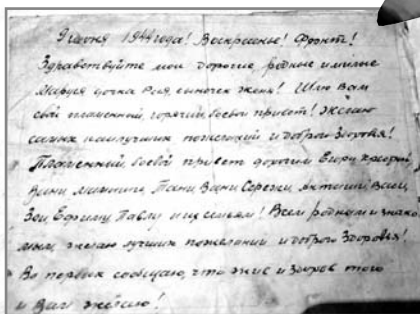 1944 года! Воскресенье! Фронт!
Здравствуйте мои дорогие родные и милые
Маруся дочка Рая, сыночек Женя! Шлю Вам
свой пламенный, горячий, боевой привет! Желаю
самых наилучших пожеланий и доброго здоровья!
Пламенный, боевой привет дорогим
Вани Тани Вани Сережи, Вали,
Зои Ефиму Павлу и их семьям! Всем родным и знако
мым, желаю лучших пожеланий и доброго здоровья!
Во первых сообщаю, что жив и здоров того
и Вам желаю!